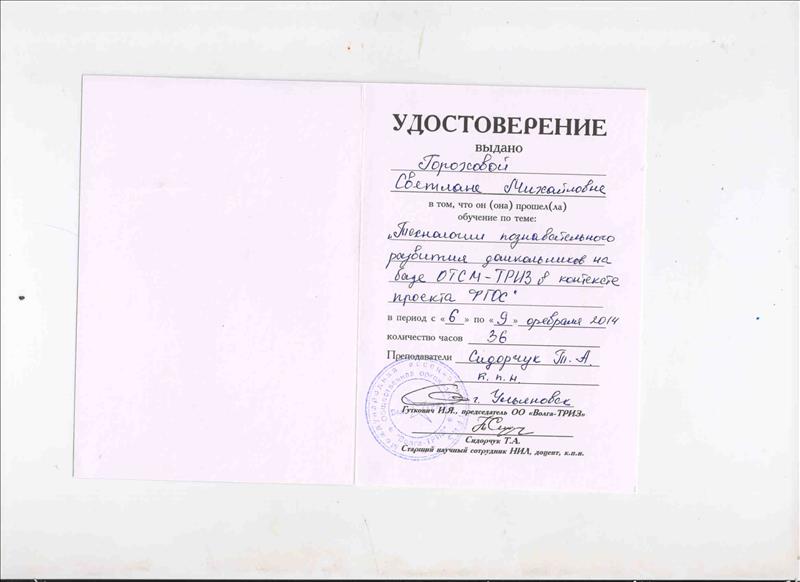 УДОСТОВЕРЕНИЕ
выдано
Гороховой
Светлане Михайловне
в том, что он (она) прошел(ла)
обучение по теме:
„Технологии познавательного
развития дошкольников на
базе ОТСМ-ТРИЗ в контексте
проекта ФГОС"
в период с «6» по «9» февраля 2014
количество часов 36
Преподаватели Сидорчук Т.А.
к.п.н.
г. Ульяновск
Гуткович И.Я., председатель ОО «Волга-ТРИЗ»
Сидорчук Т.А.
Старший научный сотрудник НИЛ, доцент, к.п.н.
"Волга-ТРИЗ"